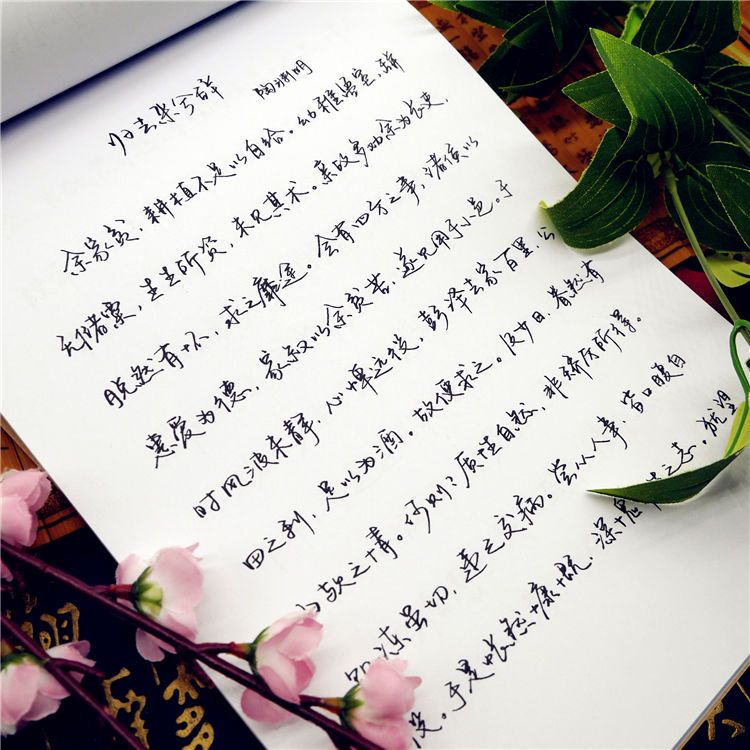 归去来兮辞 陶渊明
余家贫，耕植不足以自给。幼稚盈室，瓶
无储粟，生生所资，未见其术。亲故多劝余为长吏，
脱然有怀，求之靡途。会有四方之事，诸侯以
惠爱为德，家叔以余贫苦，遂见用于小邑。于
时风波未静，心惮远役，彭泽去家百里，公
田之利，足以为酒。故便求之。及少日，眷然有
欤之情。何则？质性自然，非矫厉所得。
冻虽切，违己交病。尝从人事，皆口腹自
役。于是怅然慷慨，深愧之志。犹望